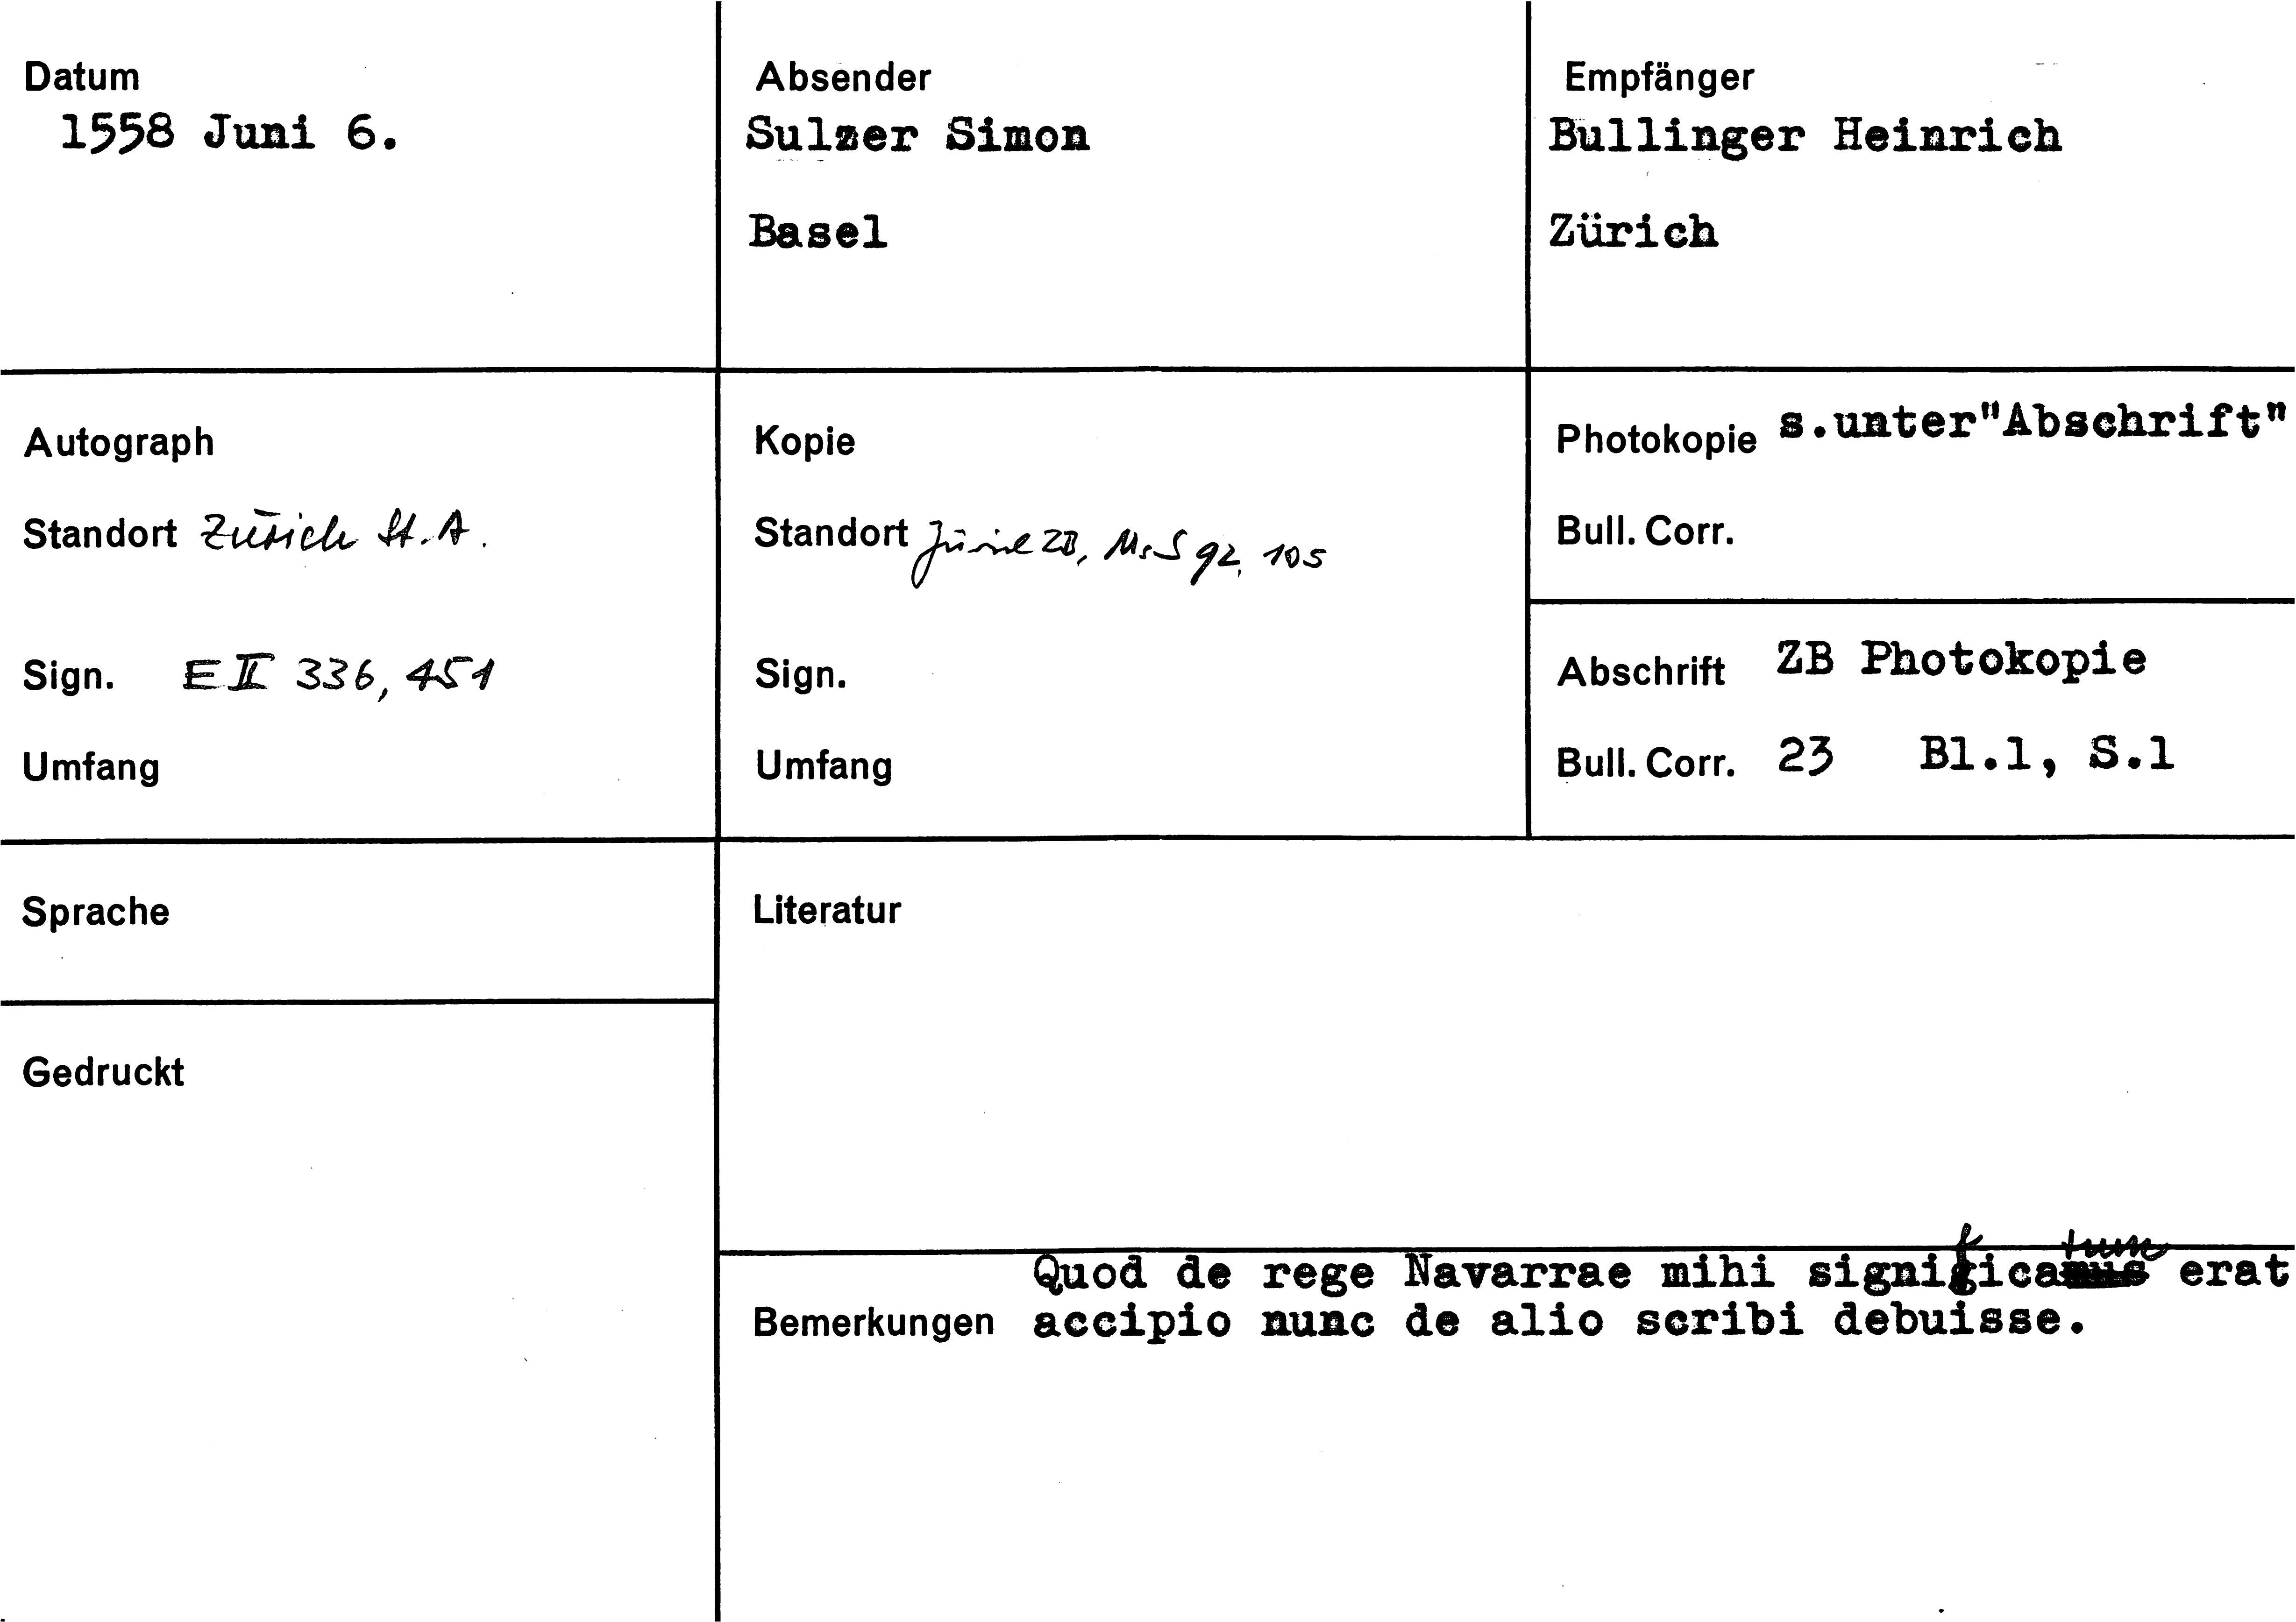 Datum
1558 Juni 6.
Absender
Sulzer Simon
Basel
Empfänger
Bullinger Heinrich
Zürich
Autograph
Standort Zürich St. A.
Sign. E II 336, 451
Umfang
Kopie
Standort Zürich ZB, Ms S 92, 105
Sign.
Umfang
Photokopie s.unter"Abschrift"
Bull. Corr.
Abschrift ZB Photokopie
Bull. Corr. 23 Bl.1, S.1
Sprache
Literatur
Gedruckt
Quod de rege Navarrae mihi significatum erat
Bemerkungen accipio nunc de alio scribi debuisse.